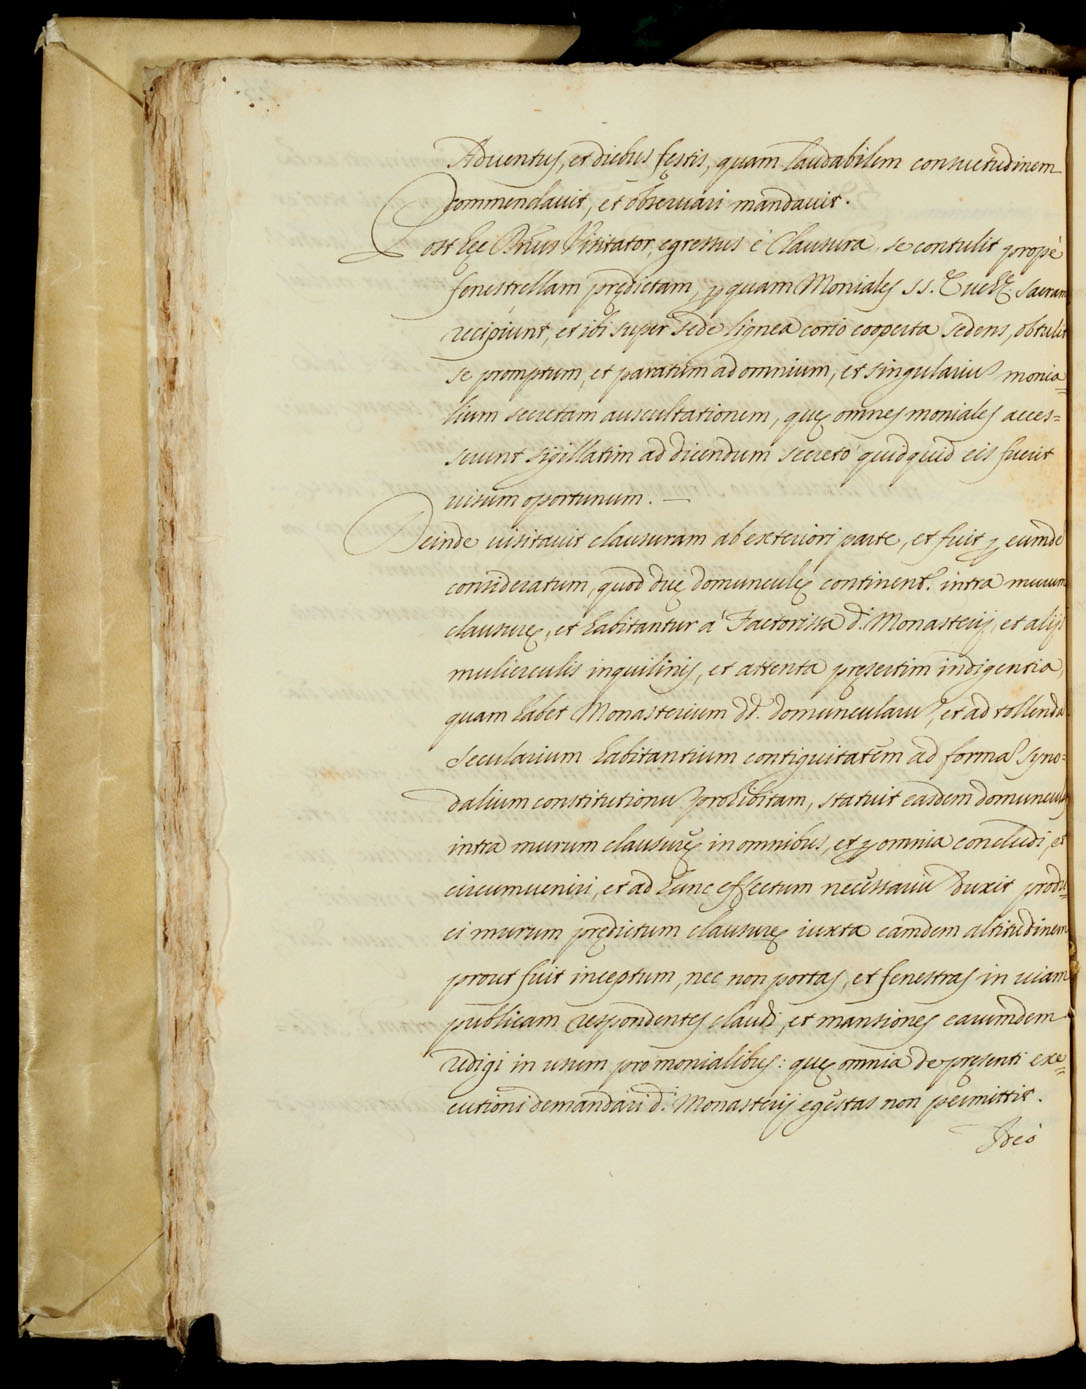 Aduentus, et diebus festis, quam laudabilem consuetudinem
commendauit, et obseruari mandauit.
Post hęc Ptus Visitator, egressus è Clausura, se contulit propè
fenestrellam prędictam, p quam Moniales SS. sacram
recipiunt, et ibi super sede lignea corio cooperta sedens, obtulit
se promptum, et paratum ad omnium, et singulariu monia=
lium secretam auscultationem, quę omnes moniales acces=
serunt sigillatim ad dicendum secretò quidquid eis fuerit
uisum oportunum. —
Deinde uisitauit clausuram ab exteriori parte, et fuit p eumde
consideratum, quod duę domunculę continent. intra murum
clausurę, et habitantur à Factorissa d. Monasterij, et alijs
mulierculis inquilinis, et attenta pręsertim indigentia,
quam habet Monasterium dd. domuncularu, et ad tollenda
secularium habitantium contiguitatem ad forma syno=
dalium constitutionu prohibitam, statuit easdem domunculas
intra murum clausurę in omnibus, et p omnia concludi, et
circumueniri, et ad hunc effectum necessariu duxit produ=
ci murum prędictum clausurę iuxta eamdem altitudinem
prout fuit inceptum, nec non portas, et fenestras in uiam
publicam respondentes claudi, et mansiones earumdem
redigi in usum pro monialibus: quę omnia de pręsenti exe=
cutioni demandari d. Monasterij egestas non permittit.
Ideò